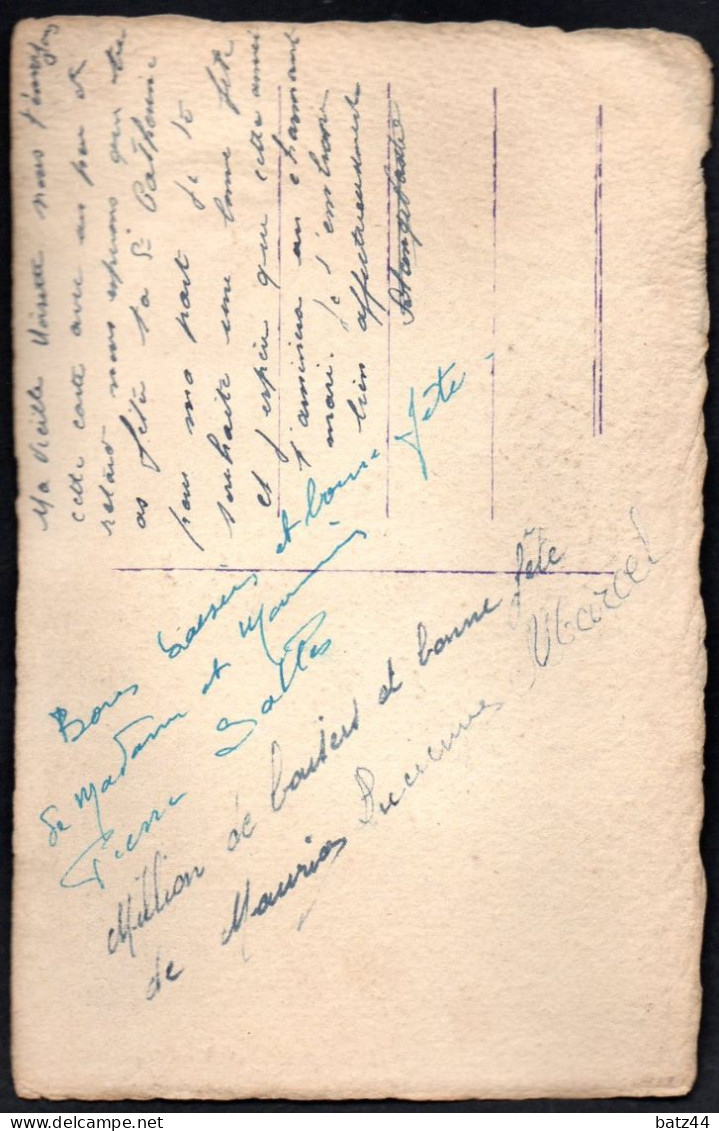 Ma Vieille nous t'envoyons
cette carte avec un peu de
retard nous espérons que tu
as fêté ta Ste Catherine
pour ma part je te
souhaite une bonne fête
et j'espère que cette année
t'amènera un charmant
mari. Je t'embrasse
bien affectueusement
Bons baisers et bonne fête -
de Madame et Monsieur
Pierre Salles
Million de baisers et bonne fête
de Maurice Lucienne Marcel
batz44